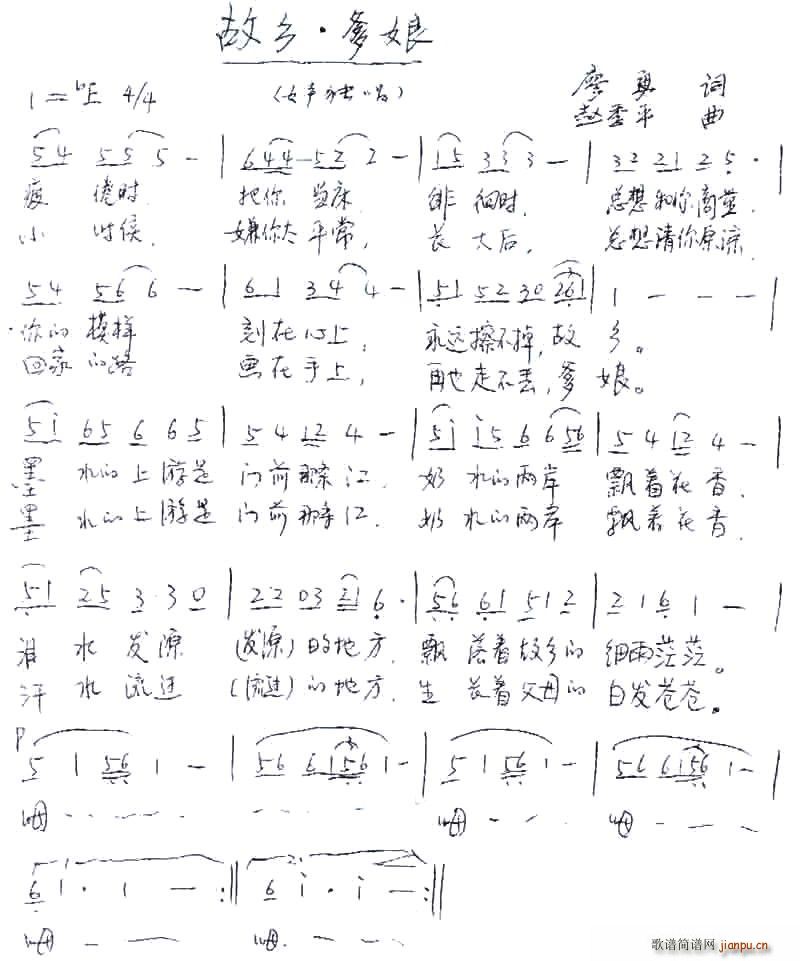 故乡·爹娘
1=♭E 4/4 (女声独唱) 廖勇 词
赵季平 曲
5 4 5 5 5 - | 6 4 4 5 2 2 - | 1 5 3 3 3 - | 3 2 2 1 2 5 · |
疲倦时 把你当床 徘徊时 总想和你商量
小时候 嫌你太平常 长大后 总想请你原谅
5 4 5 6 6 - | 6 1 3 4 4 - | 5 1 5 2 3 0 2 6 1 | 1 - - - |
你的模样 刻在心上, 永远擦不掉,故乡。
回家的路 画在手上, 再也走不丢,爹娘。
5 i 6 5 6 6 5 | 5 4 1 2 4 - | 5 i i 5 6 6 5 6 | 5 4 1 2 4 - |
墨水的上游是 门前那条江. 奶水的两岸 飘着花香.
墨水的上游是 门前那条江. 奶水的两岸 飘着花香.
5 1 2 5 3 · 3 0 | 2 2 0 3 2 1 6 · | 5 6 6 1 5 1 2 | 2 1 6 1 - |
泪水发源 (发源)的地方. 飘落着故乡的 细雨茫茫。
汗水流进 (流进)的地方. 生长着父母的 白发苍苍。
p
5 1 5 6 1 - | 5 6 6 1 5 6 1 - | 5 1 5 6 1 - | 5 6 6 1 5 6 1 - |
呣 呣 呣
6 1 · 1 - :|| 6 i · i - :||
呣 呣
歌谱简谱网 jianpu.cn